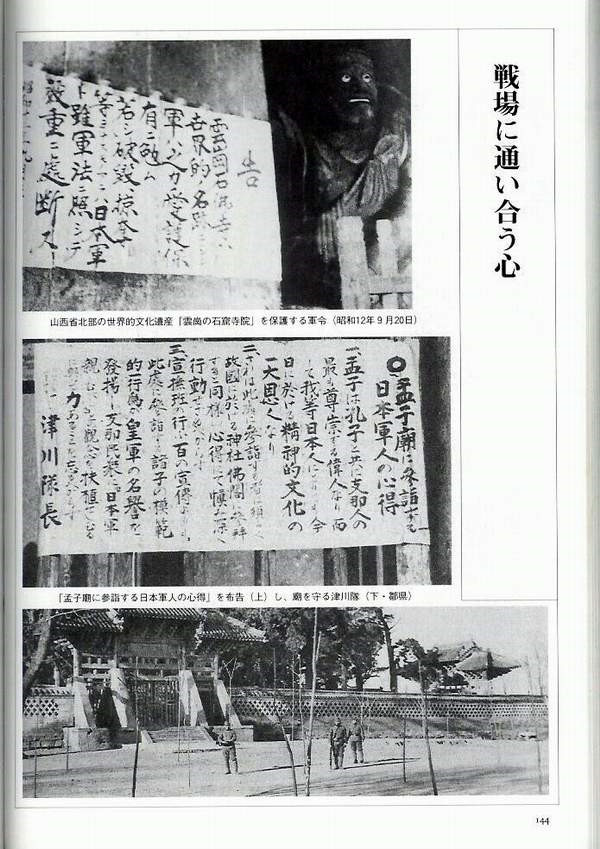 戦場に通い合う心
告
雲岡石佛寺ハ
世界的名跡ニシテ
軍ハ之カ愛護保
存ニ勉ム
若シ破毀、掠奪
等ヲ
ト雖軍法ニ照シテ
厳重ニ処断ス
山西省北部の世界的文化遺産「雲崗の石窟寺院」を保護する軍令（昭和12年9月20日）
◎孟子廟に参詣する
日本軍人の心得
一、孟子は孔子と共に支那人の
最も尊崇する偉人なり而
して我等日本人にとりても今
日に於ける精神的文化の
一大恩人なり
故国に於る神社佛閣に参拝
すると同様の心得にて慎み深く
行動
三、宣撫班の行ふ百の宣傳よりも
此處に参詣する諸子の模範
的行為が皇軍の名誉を
発揚し支那民衆に日本軍
親し
津川隊長
「孟子廟に参詣する日本軍人の心得」を布告（上）し、廟を守る津川隊（下・鄒県）
144